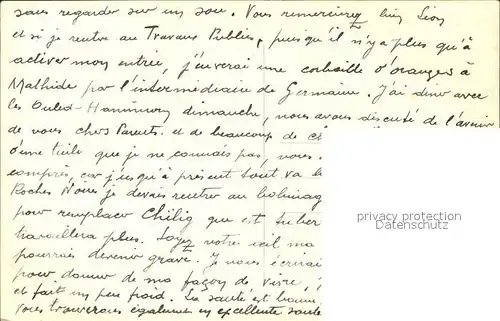 sans regarder sur un sou. Vous remercierez bien Lion
et si je rentre au Travaux Publics, puisqu'il n'y a plus qu'à
activer mon entrée, j'enverai une corbeille d'oranges à
Mathide par l'intermédiaire de Germaine. J'ai diner avec
les Ouled-Hammimou dimanche, nous avons discuté de l'avenir
de vous chers Parents. et de beaucoup de ch
d'une tuile que je ne connais pas, vous.
compris, car jusqu'à présent tout va b
Roches Noires je devais rentrer au bobinag
pour remplacer Chélig que est tuber
travaillera plus. Soyez votre œil ma
pourrais devenir grave. Je vous écrirai
pour donner de ma façon de vivre,
et fait un peu froid. La santé est bonne
vous trouverons également en excellente santé
privacy protection
Datenschutz